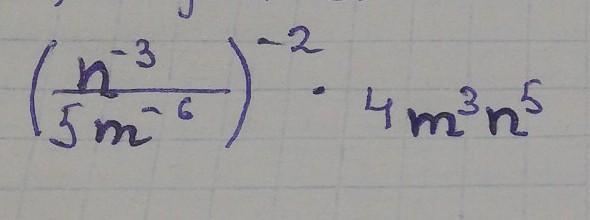 (n⁻³/5m⁻⁶)⁻² · 4m³n⁵